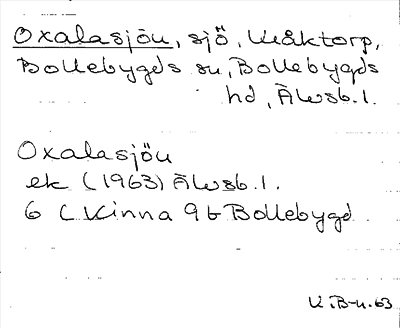 Oxalasjön, sjö, Kråktorp,
Bollebygds sn, Bollebygds
hd, Älvsb. l.
Oxalasjön
ek (1963) Älvsb. l.
6 C Kinna 9b Bollebygd
63